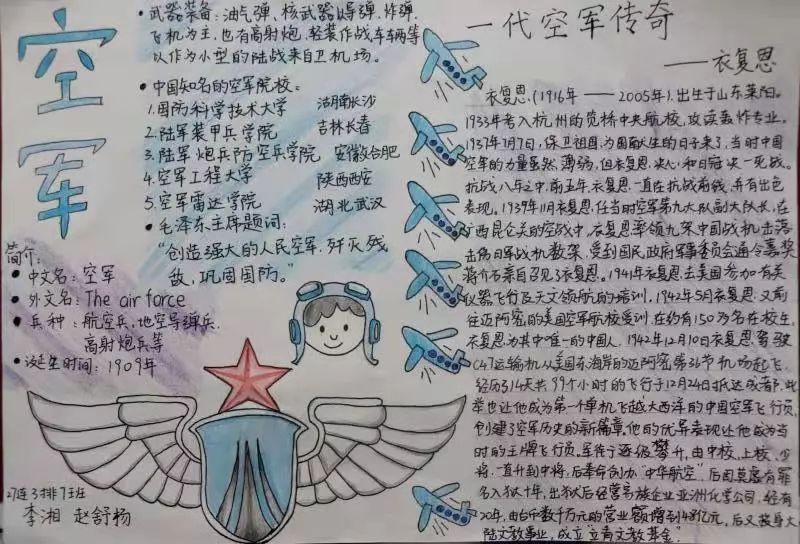 空军
• 武器装备：油气弹、核武器爆弹、炸弹、
飞机为主，也有高射炮、轻装作战车辆等
以作为小型的陆战来自卫机场。
• 中国知名的空军院校：
1.国防科学技术大学 湖南长沙
2.陆军装甲兵学院 吉林长春
3.陆军炮兵防空兵学院 安徽合肥
4.空军工程大学 陕西西安
5.空军雷达学院 湖北武汉
• 毛泽东主席题词：
“创造强大的人民空军，歼灭残
敌，巩固国防。”
简介：
• 中文名：空军
• 外文名：The air force
• 兵种：航空兵、地空导弹兵、
高射炮兵等
• 诞生时间：1909年
27连3排7班
李湘 赵舒杨
一代空军传奇
——衣复恩
衣复恩，(1916年——2005年)，出生于山东莱阳。
1933年考入杭州的笕桥中央航校，攻读轰炸专业。
1937年7月7日，保卫祖国，为国献生的日子来了，当时中国
空军的力量虽然薄弱，但衣复恩决心和日寇决一死战。
抗战八年之中，前五年，衣复恩一直在抗战前线，并有出色
表现。1939年11月衣复恩任当时空军第九大队副大队长，在
广西昆仑关的空战中，衣复恩率领九架中国战机击落
击伤日军战机数架，受到国民政府军事委员会通令嘉奖
蒋介石亲自召见了衣复恩。1941年衣复恩去美国参加有关
仪器飞行及天文领航的培训。1942年5月衣复恩又前
往迈阿密的美国空军航校受训，在约有150多名在校生，
衣复恩为其中唯一的中国人。1942年12月10日衣复恩驾驶
C47运输机从美国东海岸的迈阿密第36节机场起飞，
经历了14天共99个小时的飞行于12月24日抵达成都，此
举也让他成为第一个单机飞越大西洋的中国空军飞行员，
创建了空军历史的新篇章，他的优异表现让他成为当
时的王牌飞行员，军衔于逐级攀升，由中校、上校、少
将，直升到中将，后奉命创办“中华航空”，后因莫虚有罪
名入狱十年，出狱后经营另族企业亚洲化学公司，经有
20年，由台币数千万元的营业额增到48亿元，后又投身大
陆文教事业，成立“立青文教基金”